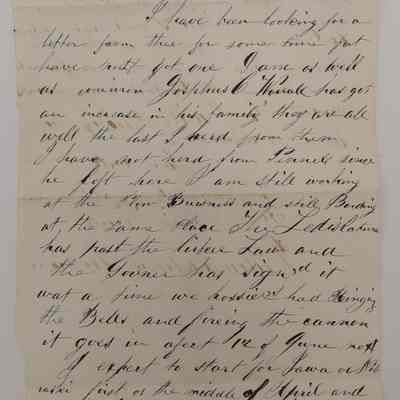 I have been looking for a
letter from thee for some time yet
have not got one Dame as well
as common Josephus C Worrall has got
an increase in his family they are all
well the last I herd from them
I have not herd from Pennell since
he left here I am still working
at the Plow Buisness and still Boarding
at the same place The Legislature
has past the licker Law and
the Govner has sign'd it
wat a time we had Ringing
the Bells and fireing the cannon
it goes in afect 12 of June next
I expect to start for Iowa or
first or the middle of April and